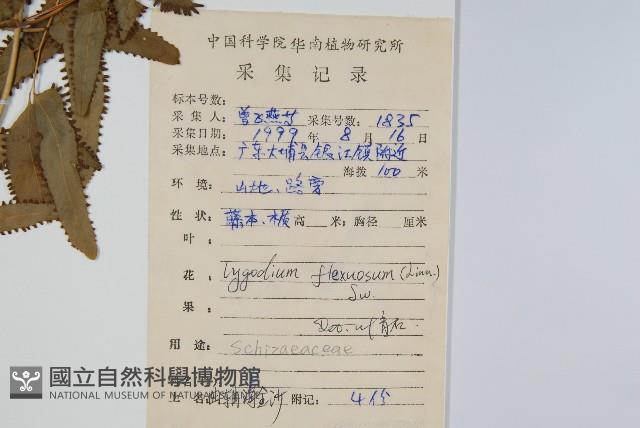 中国科学院华南植物研究所
采集记录
标本号数:
采集人: 曾飞燕 采集号数: 1835
采集日期: 1999 年 8 月 16 日
采集地点: 广东大埔县银江镇附近
海拨 100 米
环境: 山地、路旁
性状: 藤本、 高 米; 胸径 厘米
叶:
花: Lygodium flexuosum (Linn.)
Sw.
果:
Det.
用途: Schizaeaceae
國立自然科學博物館
NATIONAL MUSEUM OF NATURAL SCIENCE
土名: 海金沙 附记: 4份